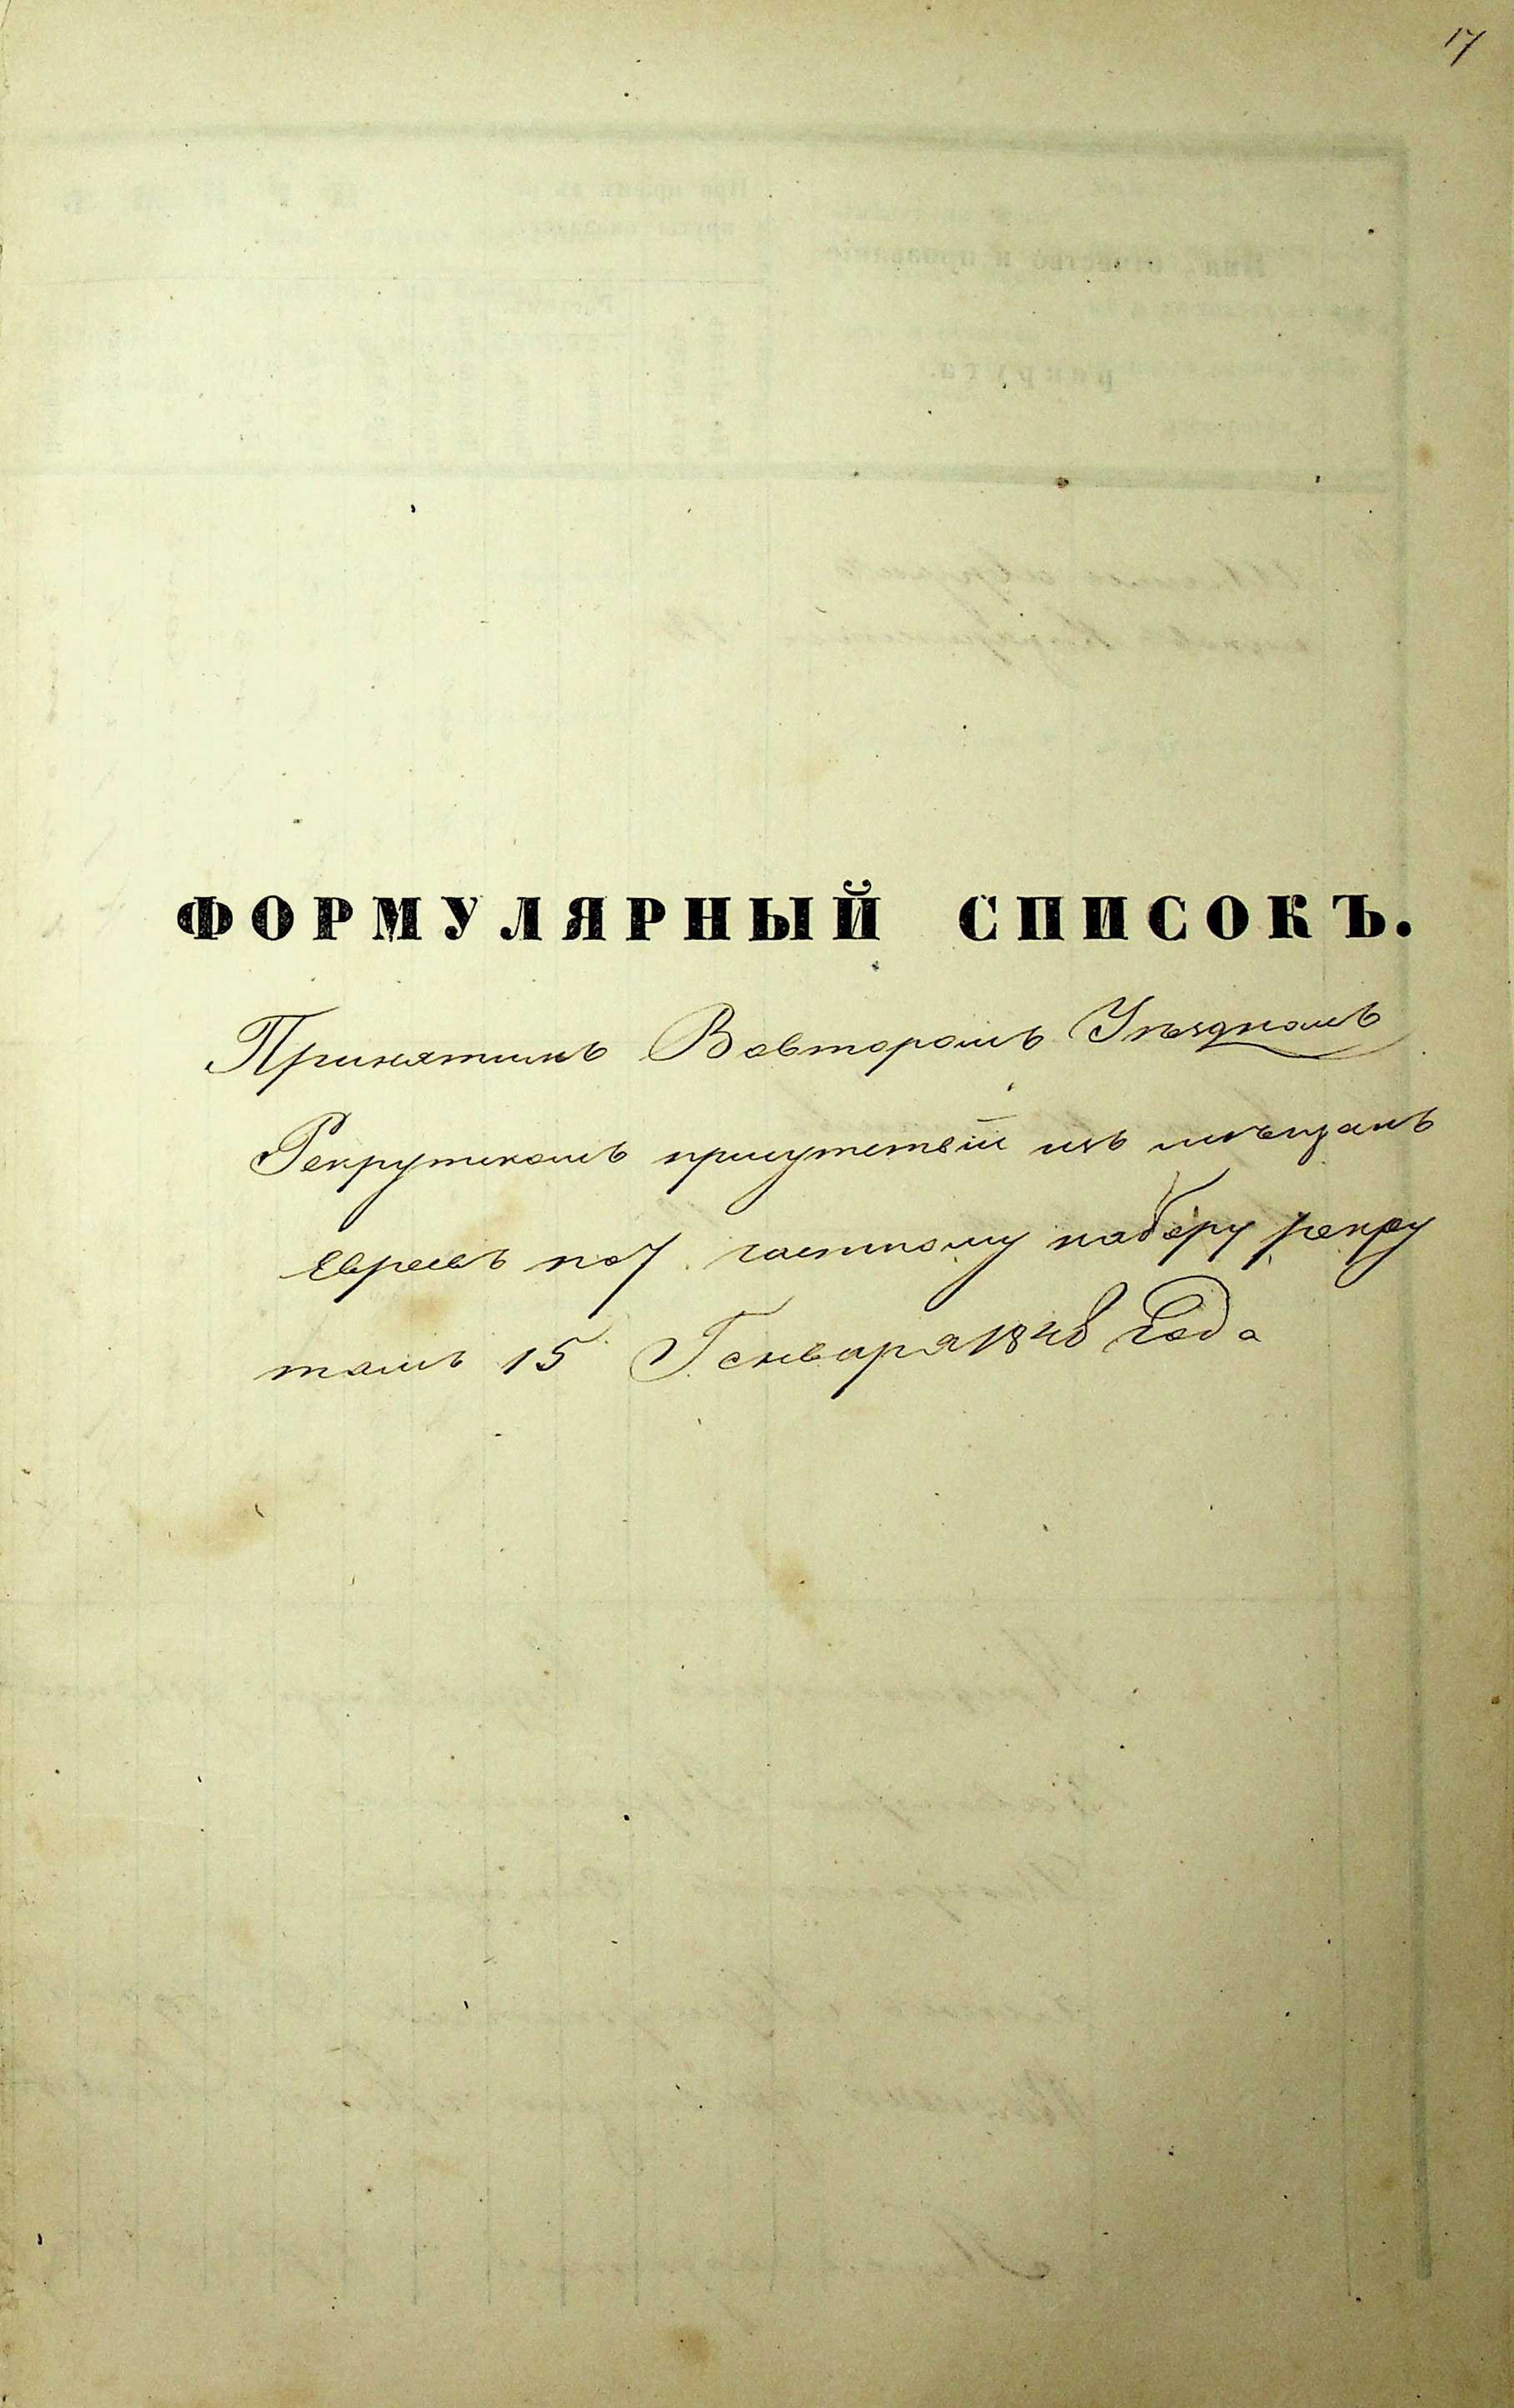 17
ФОРМУЛЯРНЫЙ СПИСОКЪ.
Принятымъ Вовторомъ Уѣздномъ
Рекрутскомъ присутствіи изъ мѣщанъ
евреевъ по 7 частному набору рекру
тамъ 15 Генваря 1848 Года